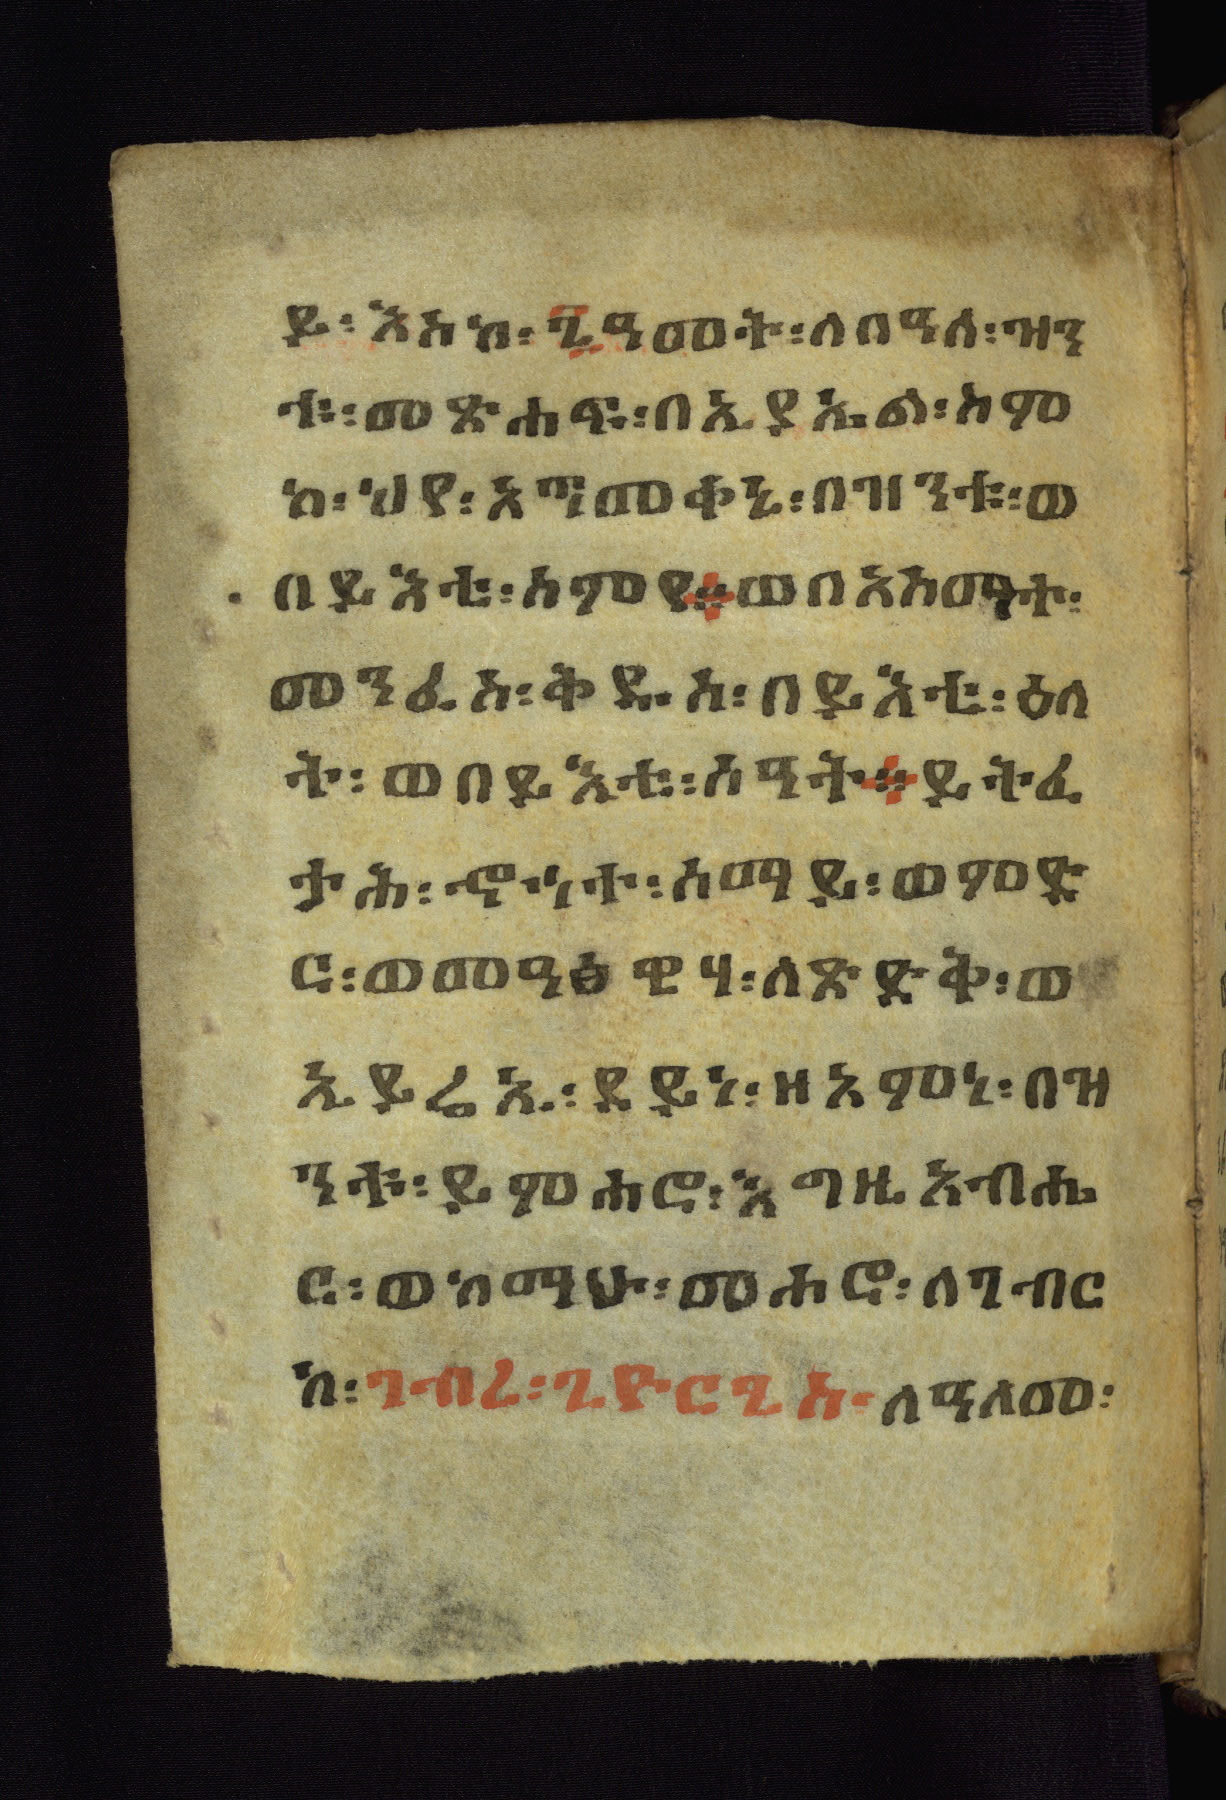 ይ፡ እስከ፡ ፯ዓመት፡ ለበዓለ፡ ዝን
ቱ፡ መጽሐፍ፡ በኢያኤል፡ ስም
ከ፡ ህየ፡ አኀመቀኒ፡ በዝንቱ፡ ወ
በይእቲ፡ ስምየ፨ ወበአስማት፡
መንፈስ፡ ቅዱስ፡ በይእቲ፡ ዕለ
ት፡ ወበይእቲ፡ ሰዓት፨ ይትፈ
ታሕ፡ ኆኅተ፡ ሰማይ፡ ወምድ
ር፡ ወመዓፅዊሃ፡ ለጽድቅ፡ ወ
ኢይሬኢ፡ ደይነ፡ ዘአምነ፡ በዝ
ንቱ፡ ይምሐሮ፡ እግዚአብሔ
ር፡ ወከማሁ፡ መሐሮ፡ ለገብር
ከ፡ ገብረ፡ ጊዮርጊስ፡ ለዓለመ፡